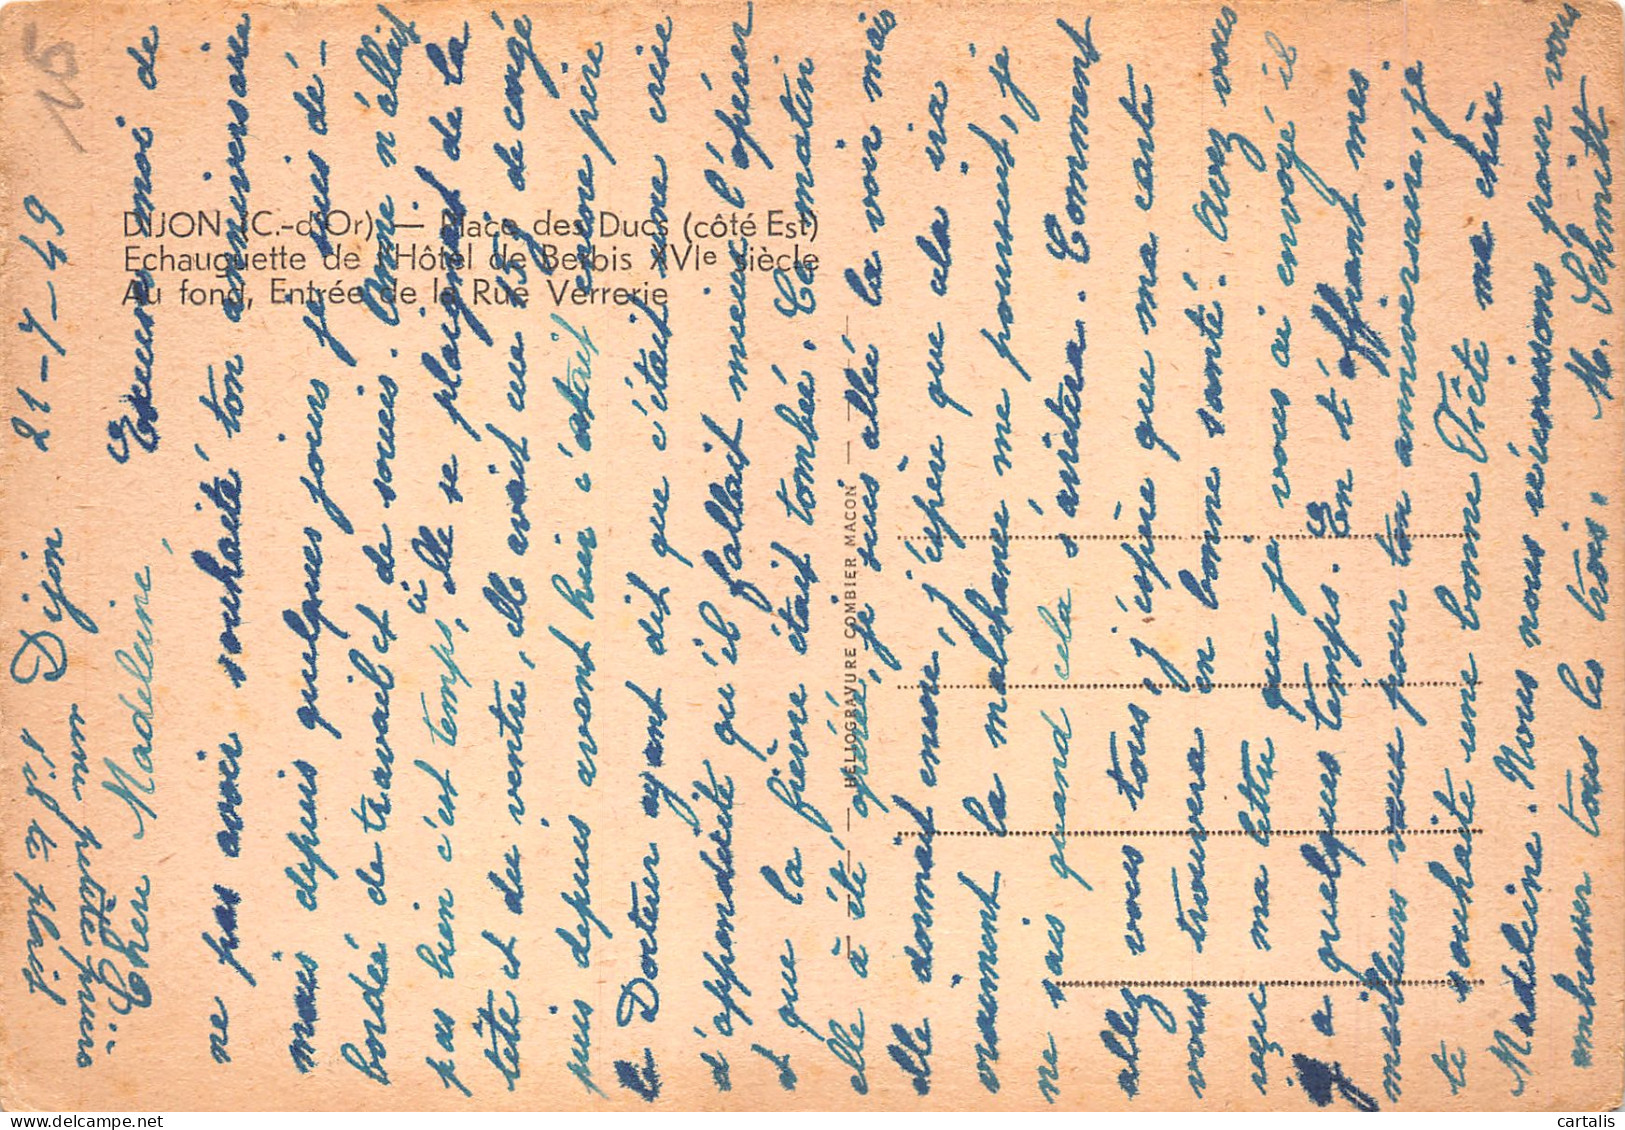 15
Dijon 21-7-49
Chère Madeleine
Excuse moi de
ne pas avoir souhaité ton anniversaire
mais depuis quelques jours je suis dé-
bordée de travail et de soucis. Anne n'allait
pas bien c'est temps ci, elle se plaignait de la
tête et du ventre, elle avait eue 15 j de congé
puis depuis avant hier c'était encore pire
le Docteur ayant dit que c'était une crise
d'appendicite qu'il fallait mieux l'opérer
et que la fièvre était tombée. Ce matin
elle à été opéré, je suis allée la voir mais
elle dormait encore, j'espère que cela ira
vraiment la malchance me poursuit, je
ne sais quand cela s'arrêtera. Comment
allez vous tous, j'espère que ma carte
vous trouvera en bonne santé. Avez vous
reçue ma lettre que je vous ai envoyé il
y a quelques temps. En t'offrant mes
meilleurs vœux pour ton anniversaire, je
te souhaite une bonne Fête ma chère
Madeleine. Nous nous réunissons pour vous
embrasser tous les trois. M. Schmitt
une petite
s'il te plaît
DIJON (C.-d'Or) — Place des Ducs (côté Est)
Echauguette de l'Hôtel de Berbis XVIe siècle
Au fond, Entrée de la Rue Verrerie
HÉLIOGRAVURE COMBIER MACON
cartalis
delcampe.net